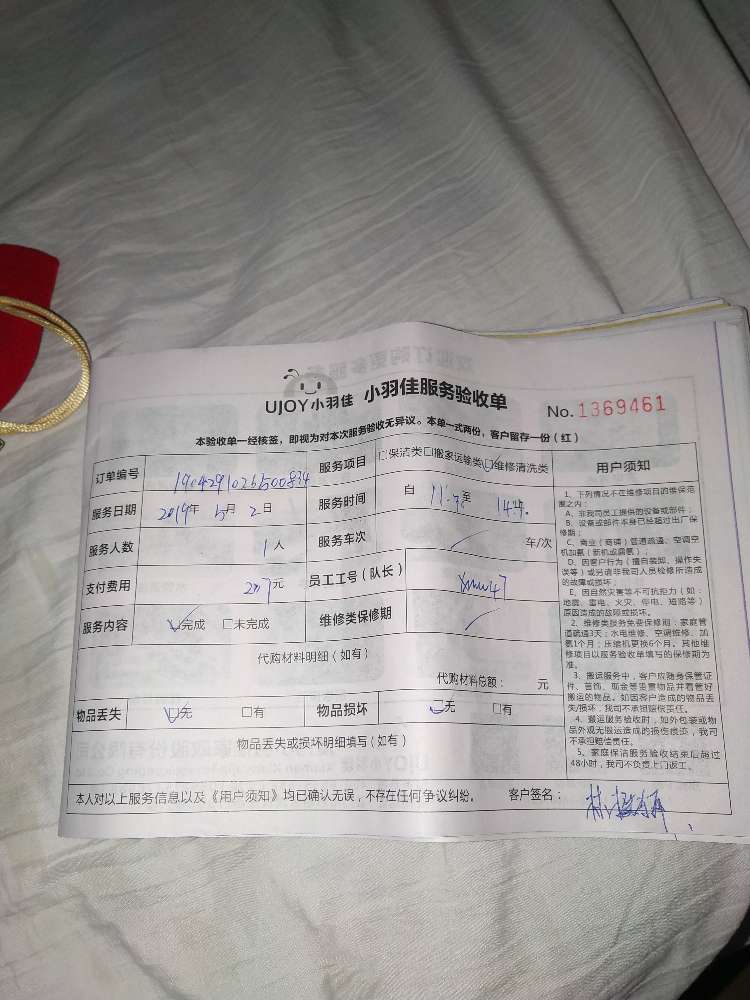 UJOY小羽佳 小羽佳服务验收单
No. 1369461
本验收单一经核签，即视为对本次服务验收无异议。本单一式两份，客户留存一份（红）
订单编号
服务项目 □保洁类□搬家运输类☑维修清洗类
服务日期 2019年 5月 2日
服务时间 自 至
服务人数 1人
服务车次 车/次
支付费用 207元
员工工号（队长） xmw47
服务内容 ☑完成 □未完成
维修类保修期
代购材料明细（如有）
代购材料总额： 元
物品丢失 ☑无 □有
物品损坏 ☑无 □有
物品丢失或损坏明细填写（如有）
本人对以上服务信息以及《用户须知》均已确认无误，不存在任何争议纠纷。 客户签名：
用户须知
1、下列情况不在维修项目的维保范
围之内：
A、非我司员工提供的设备或部件；
B、设备或部件本身已经超过出厂保
修期；
C、商业（商铺）管道疏通、空调空
机加氟（新机或漏氟）；
D、因客户行为（擅自装卸、操作失
误等）或另请非我司人员检修所造成
的故障或损坏；
E、因自然灾害等不可抗拒力（如：
地震、雷电、火灾、停电、短路等）
原因造成的故障或损坏。
2、维修类服务免费保修期：家庭管
道疏通3天；水电维修、空调维修、加
氟1个月；压缩机更换6个月。其他维
修项目以服务验收单填写的保修期为
准。
3、搬运服务中，客户应随身保管证
件、首饰、现金等贵重物品并看管好
搬运的物品。如因客户造成的物品丢
失/损坏，我司不承担赔偿责任。
4、搬运服务验收时，如外包装或物
品外观无搬运造成的损伤痕迹，我司
不承担赔偿责任。
5、家庭保洁服务验收结束后超过
48小时，我司不负责上门返工。